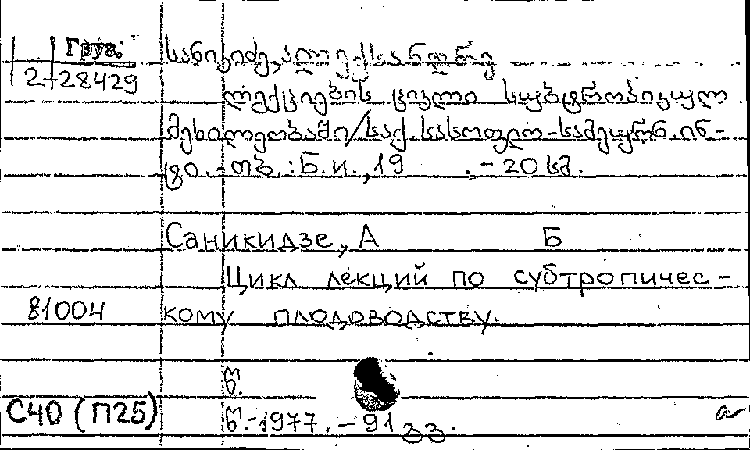 Груз.
2-28429
სანიკიძე, ალექსანდრე
ლექციების ციკლი სუბტროპიკულ
მეხილეობაში/საქ. სასოფლო-სამეურნ. ინ-
ტი.-თბ.: Б.и., 19 .-20 სმ.
Саникидзе, А Б
Цикл лекций по субтропичес-
81004 кому плодоводству.
წ.
С40 (П25) წ.-1977.-91 გვ. а